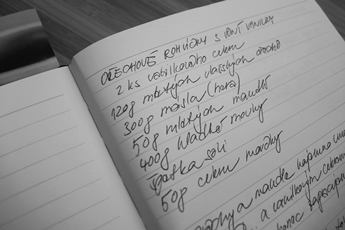 OŘECHOVÉ ROHLÍČKY S VŮNÍ VANILKY
2 ks vanilkového cukru
120g mletých vlašských ořechů
300g másla (hera)
50g mletých mandlí
400g hladké mouky
špetka soli
50g cukru moučky
mouky a
a vanilkovým cukrem